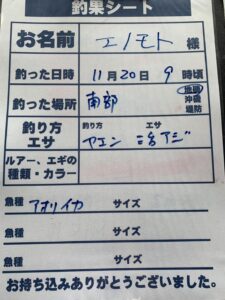 釣果シート
お名前 エノモト 様
釣った日時 11月20日 9時頃
釣った場所 南部 地磯 沖磯 堤防
釣り方 エサ 釣り方 ヤエン エサ 活アジ
ルアー、エギの種類・カラー
魚種 アオリイカ サイズ
魚種 サイズ
魚種 サイズ
お持ち込みありがとうございました。